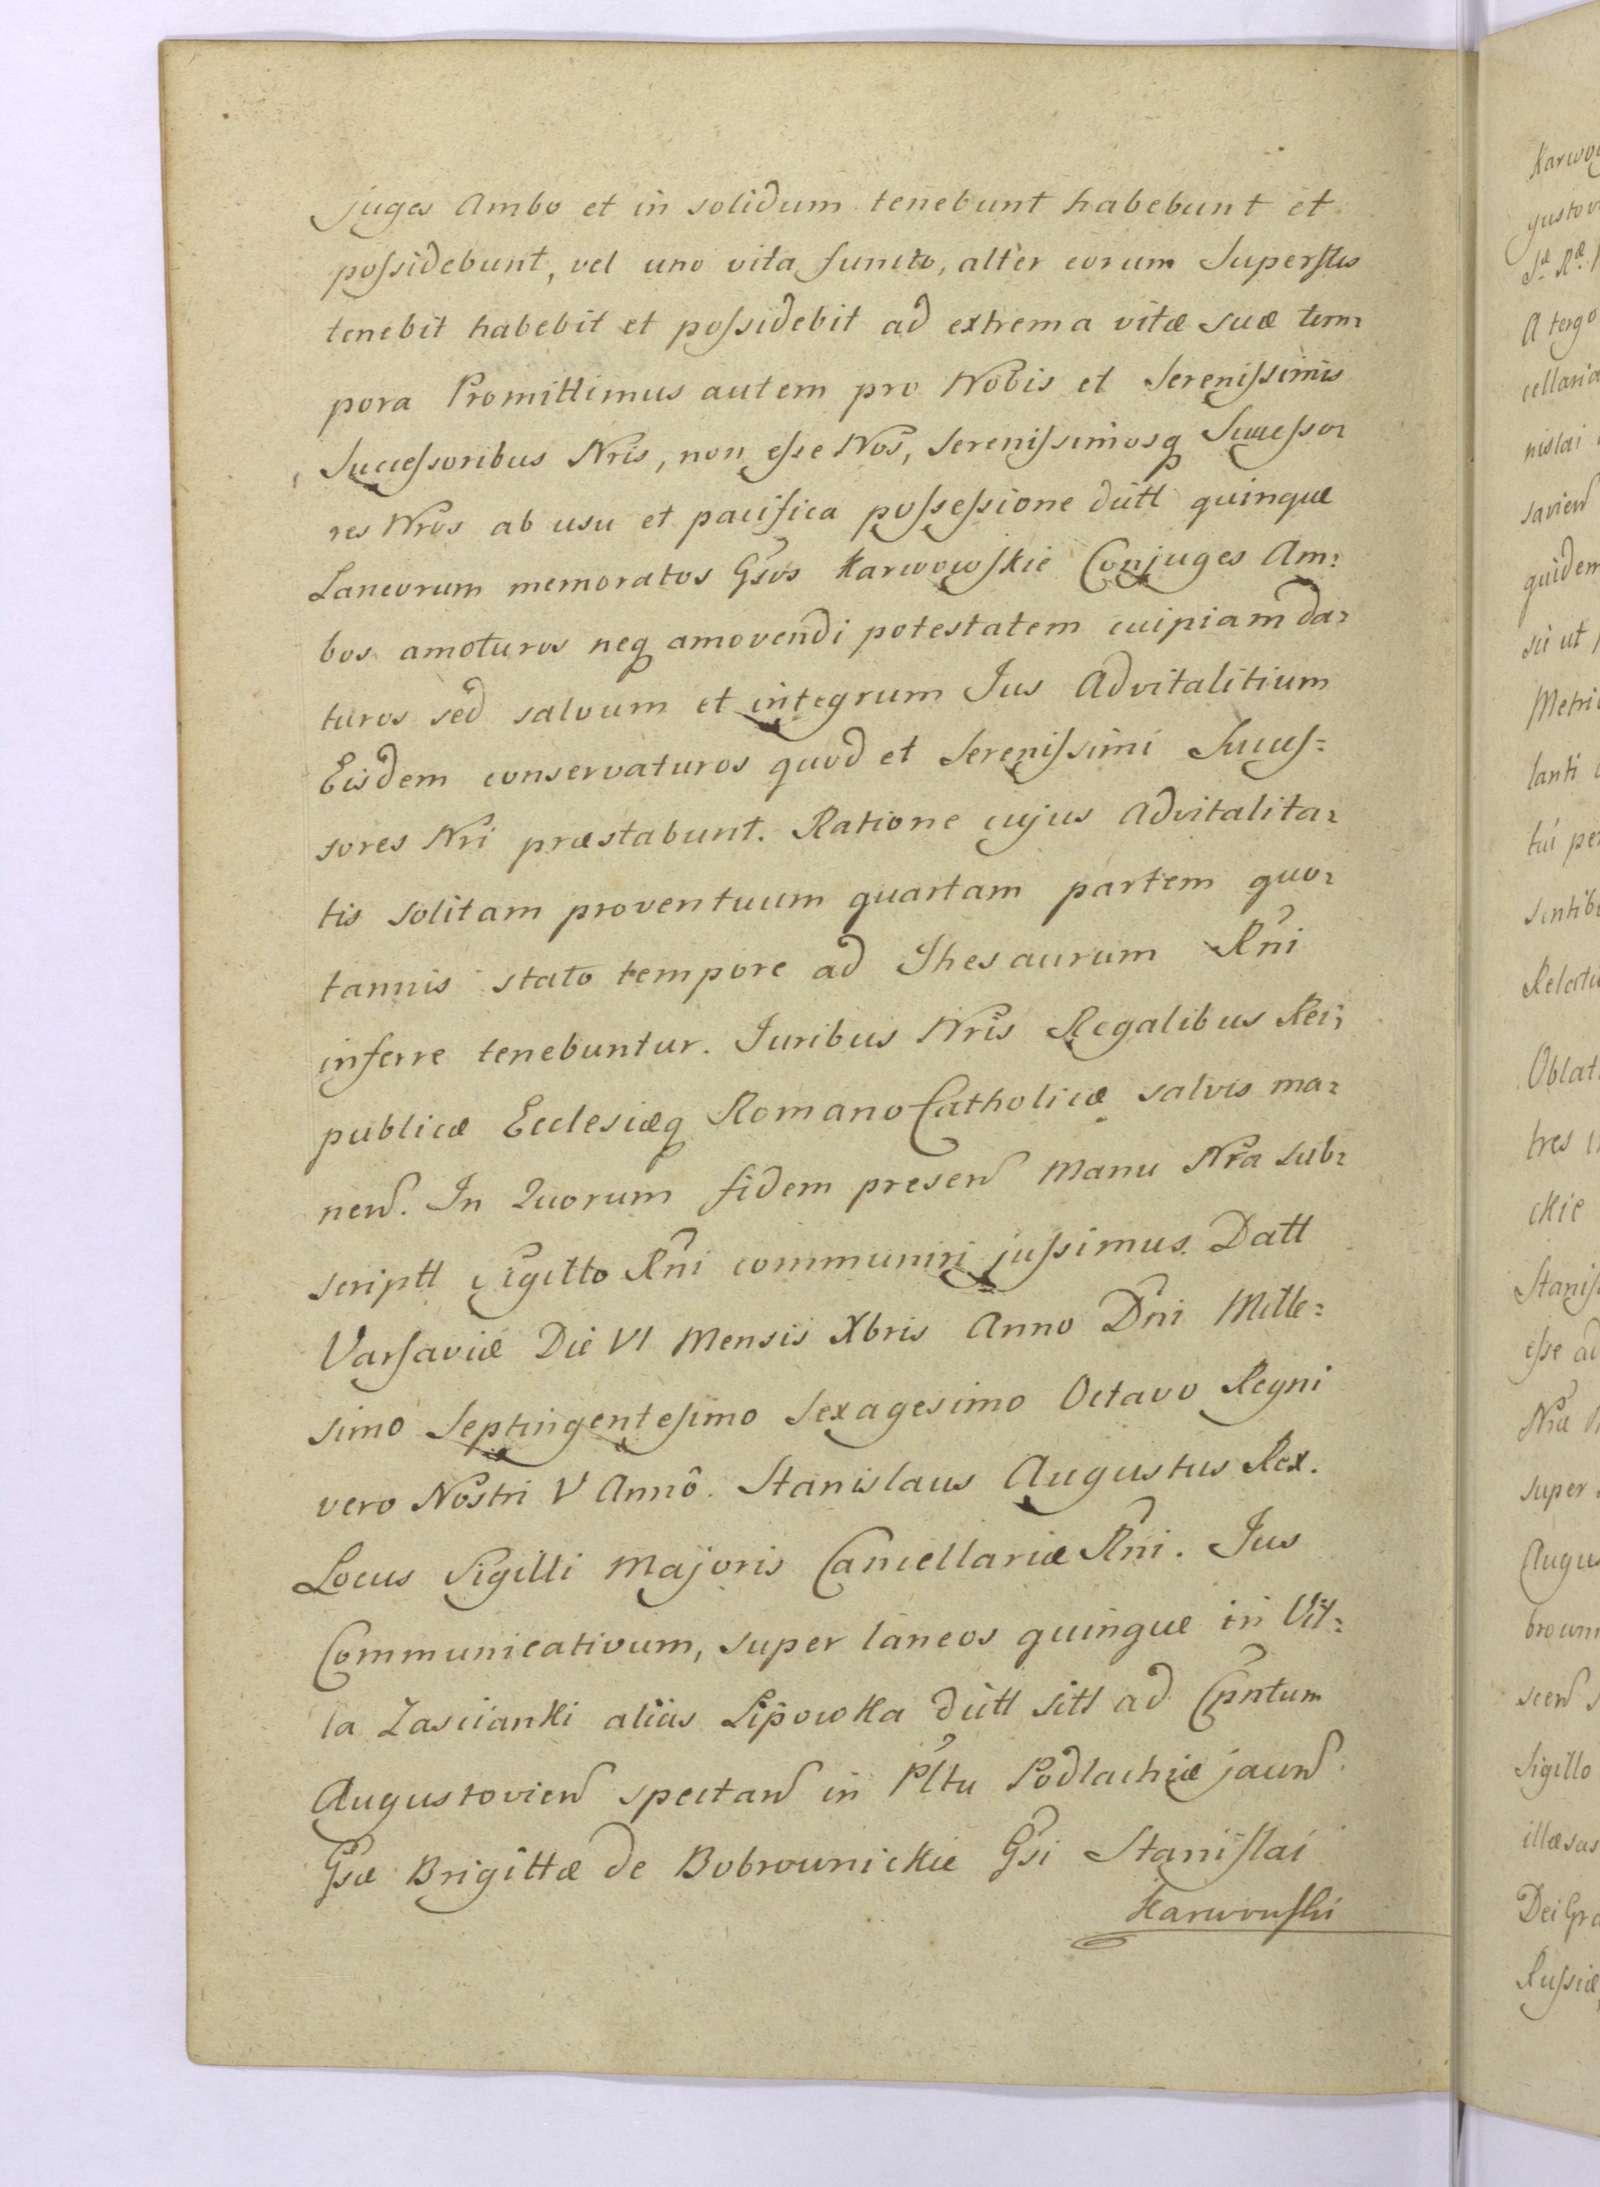 juges Ambo et in solidum tenebunt habebunt et
possidebunt, vel uno vita functo, alter eorum Superstes
tenebit habebit et possidebit ad extrema vitæ suæ tem=
pora Promittimus autem pro Nobis et Serenissimis
Successoribus Nris, non esse Nos, Serenissimosq Successo=
res Nros ab usu et pacifica possessione dictt quinque
Laneorum memoratos Gsos Karwowskie Conjuges Am=
bos amoturos neq amovendi potestatem cuipiam da=
turos sed salvum et integrum Jus Advitalitium
Eisdem conservaturos quod et Serenissimi Succes=
sores Nri præstabunt. Ratione cujus Advitalita=
tis solitam proventuum quartam partem quo=
tannis stato tempore ad Thesaurum Rni
inferre tenebuntur. Juribus Nris Regalibus Rei=
publicæ Ecclesiæq Romano Catholicæ salvis ma=
nen. In Quorum fidem presen Manu Nra sub=
scriptt Sigillo Rni communiri jussimus. Datt
Varsaviæ Die VI Mensis Xbris Anno Dni Mille=
simo Septingentesimo Sexagesimo Octavo Regni
vero Nostri V Anno. Stanislaus Augustus Rex.
Locus Sigilli Majoris Cancellariæ Rni. Jus
Communicativum, super laneos quinque in Vil=
la Zascianki alias Lipowka dictt sitt ad Cpntum
Augustovien spectan in Pltu Podlachiæ jacen
Gsæ Brigittæ de Bobrownickie Gsi Stanislai
Karwowski
Karwow
gustov
Sæ Ræ
A tergo
cellaria
nislai
savien
quidem
sii ut
Metri
lanti
tui per
sentib
Relectu
Oblat
tres
ckie
Stanis
esse ad
Nra
super
Augus
brown
scen s
Sigillo
illæsas
Dei Gra
Russiæ